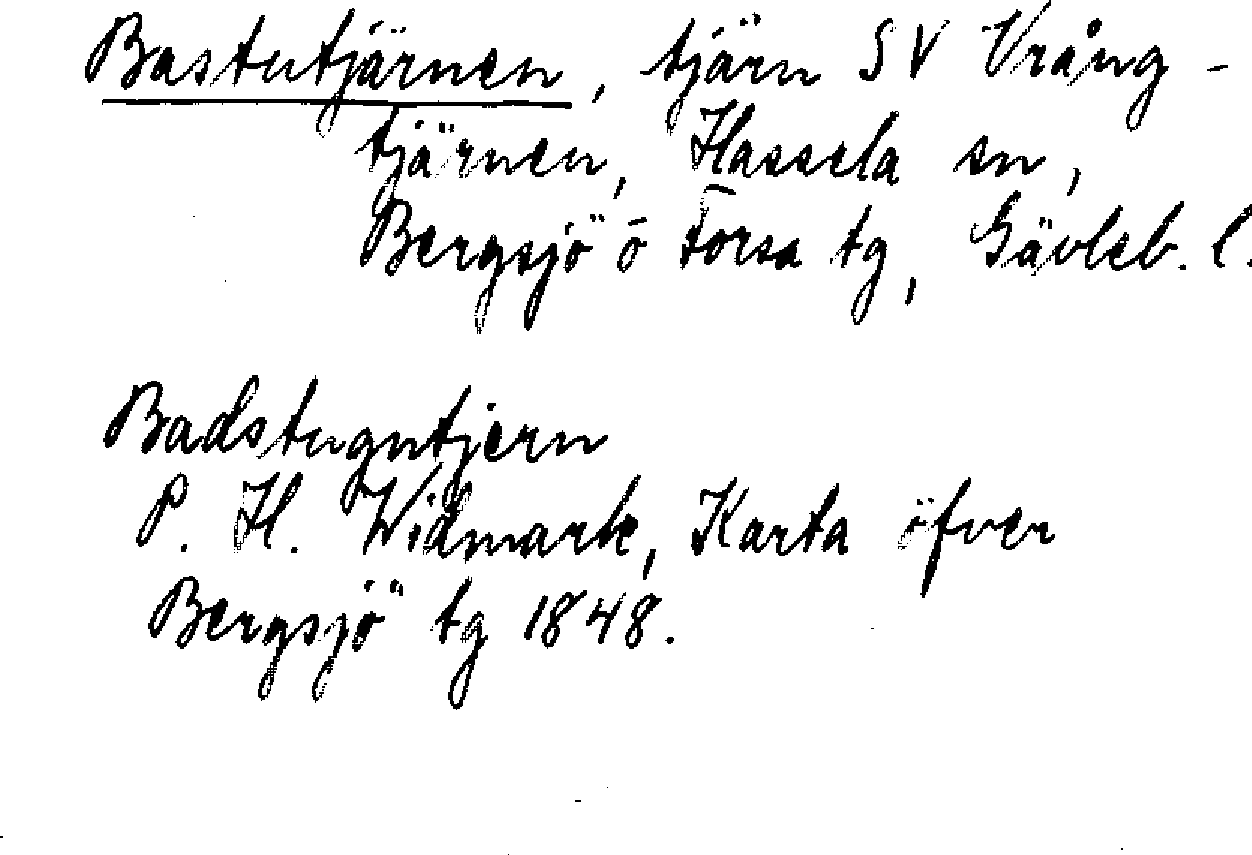 Bastutjärnen, tjärn SV Vrång-
tjärnen, Hassela sn,
Bergsjö o Forsa tg, Gävleb. l.
Badstugutjern
P. H. Widmark, Karta öfver
Bergsjö tg 1848.